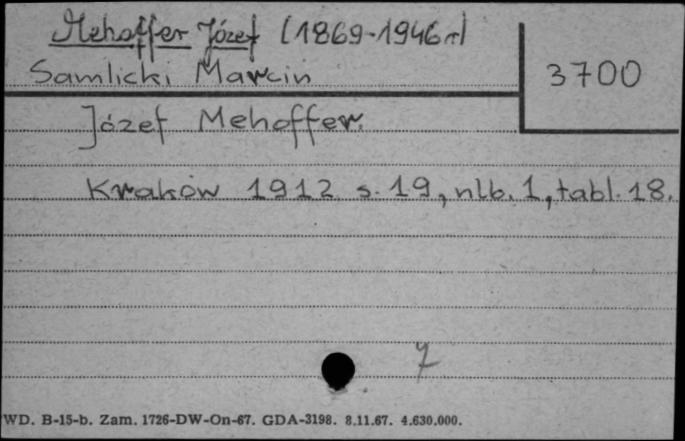 Mehoffer Józef (1869-1946 r)
Samlicki Marcin
3700
Józef Mehoffer.
Kraków 1912 s. 19, nlb. 1, tabl. 18.
7
WD. B-15-b. Zam. 1726-DW-On-67. GDA-3198. 8.11.67. 4.630.000.